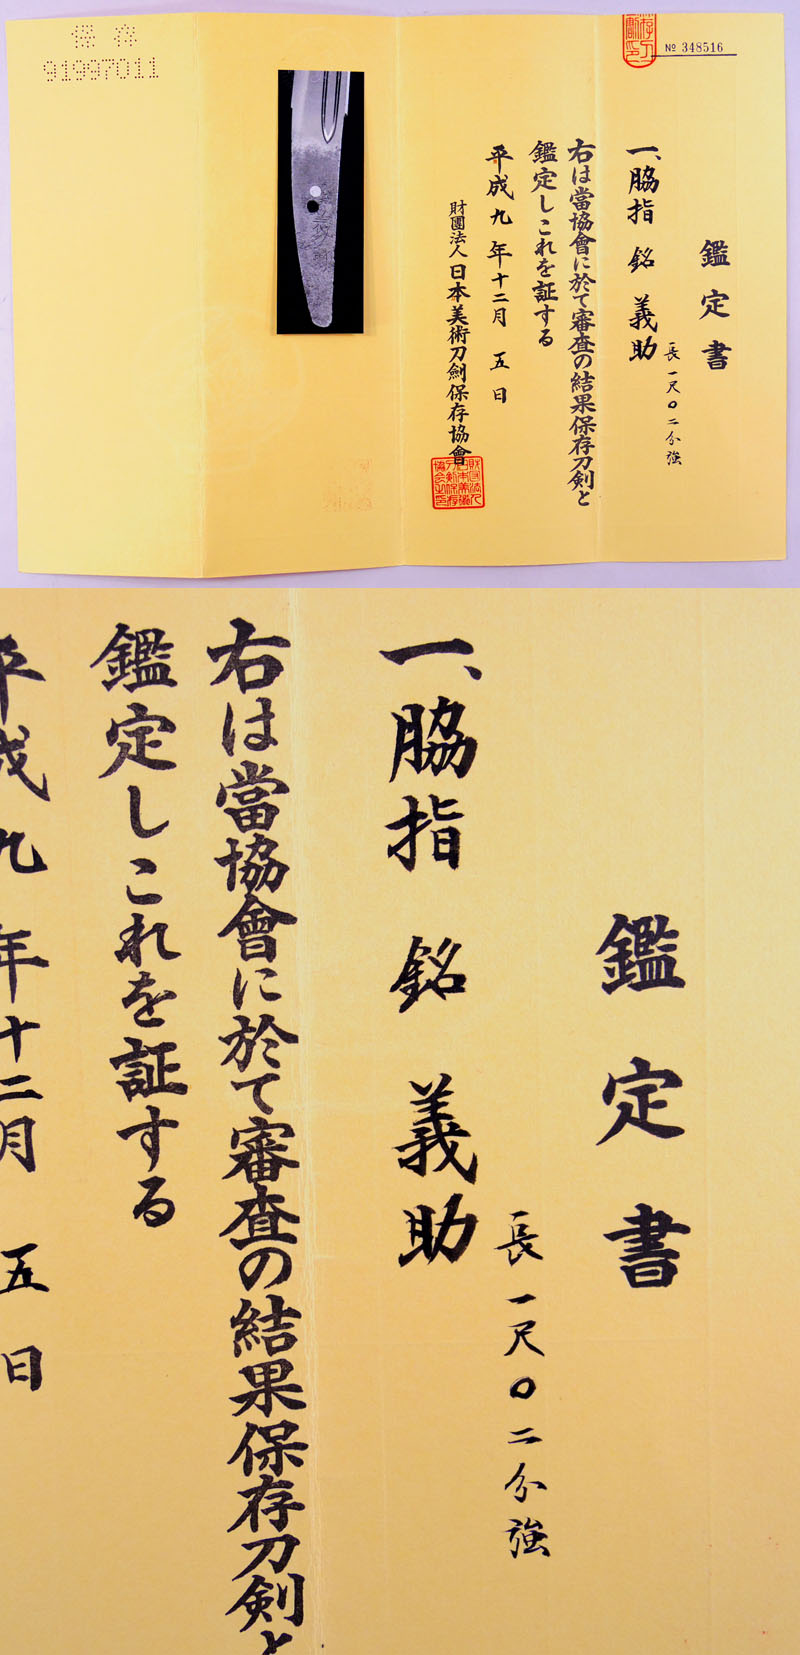 保存
91997011
№ 348516
鑑定書
長一尺〇二分強
一、脇指 銘 義助
右は當協會に於て審査の結果保存刀剣と
鑑定しこれを証する
平成九年十二月五日
財團法人日本美術刀劍保存協會
鑑定書
長一尺〇二分強
一、脇指 銘 義助
右は當協會に於て審査の結果保存刀剣と
鑑定しこれを証する
平成九年十二月五日